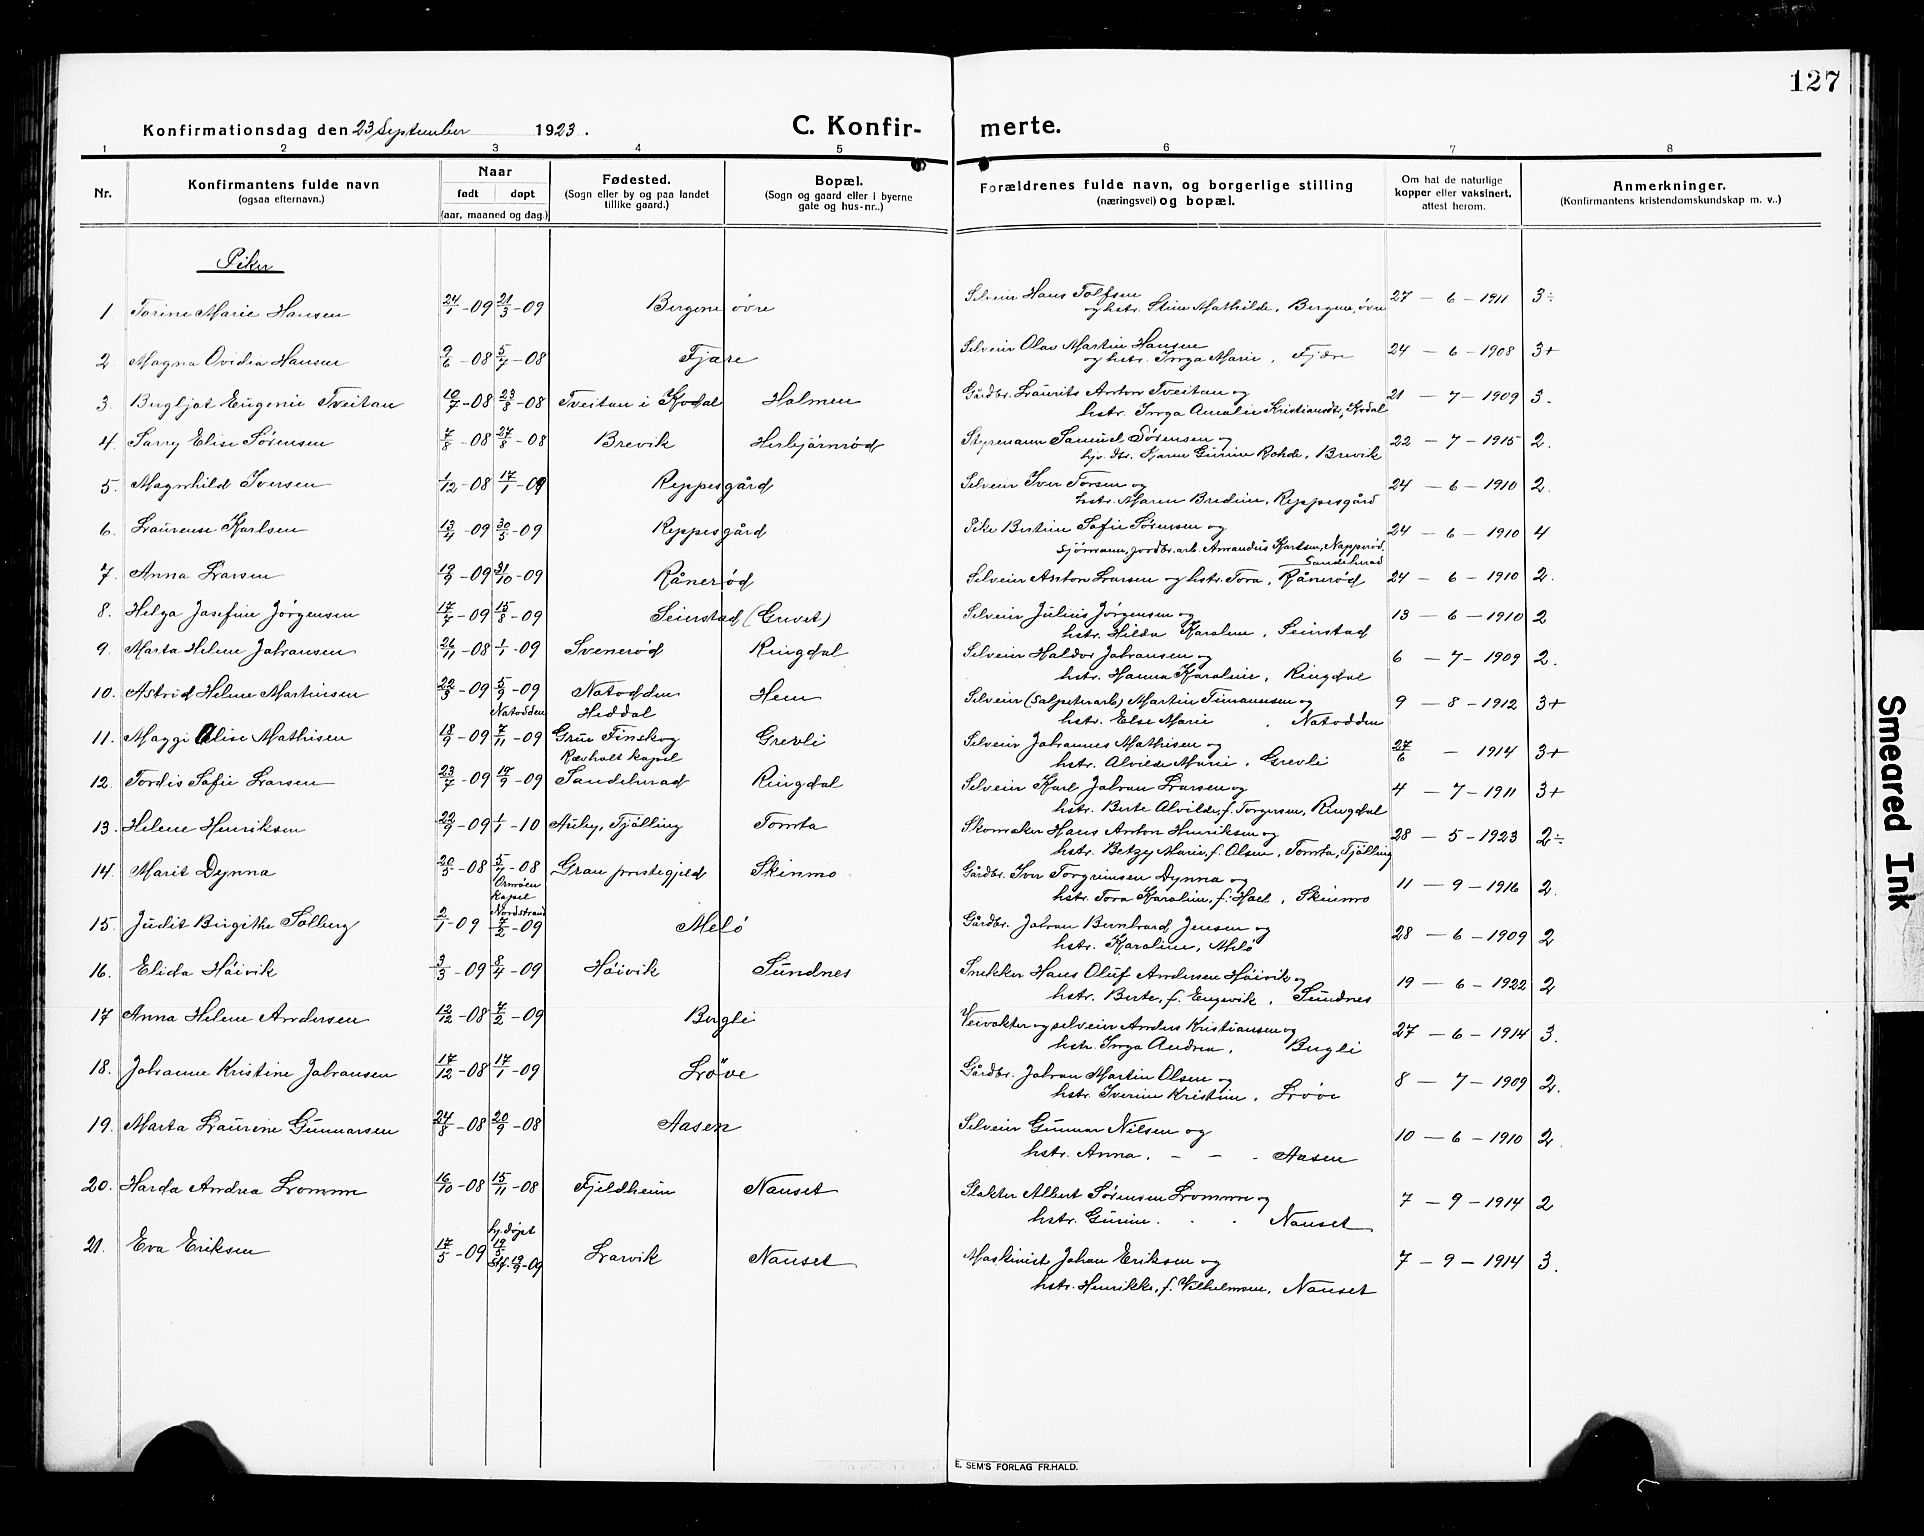 127
Konfirmationsdag den 23 September 1923.
C. Konfir-
merte.
1 2 3 4 5 6 7 8
Nr.
Konfirmantens fulde navn
(ogsaa efternavn.)
Naar
født døpt
(aar, maaned og dag.)
Fødested.
(Sogn eller by og paa landet
tillike gaard.)
Bopæl.
(Sogn og gaard eller i byerne
gate og hus-nr..)
Forældrenes fulde navn, og borgerlige stilling
(næringsvei) og bopæl.
Om hat de naturlige
kopper eller vaksinert,
attest herom.
Anmerkninger.
(Konfirmantens kristendomskundskap m. v..)
Piker
1. Torine Marie Hansen 24/1-09 21/3-09 Bergene øvre Selveier Hans Tolfsen 27-6-1911 3÷
og hstr. Stine Mathilde, Bergene, øvre
2. Magna Ovidia Hansen 9/6-08 5/7-08 Fjære Selveier Olav Martin Hansen 24-6-1908 3+
og hstr. Inga Marie, Fjære
3. Bergljot Eugenie Tveitan 10/7-08 23/8-08 Tveitan i Kodal Holmen Gårdbr. Laurits Anton Tveitan og 21-7-1909 3.
hstr. Inga Amalie Kristiansdtr, Kodal
4. Sarry Elise Sørensen 7/8-08 27/8-08 Brevik Herbjørnrød Styrmann Samuel Sørensen og 22-7-1915 2.
hjv. Htr. Karen Gurine Rohde, Brevik
5. Magnhild Iversen 1/12-08 17/1-09 Reppesgård Selveier Iver Torsen og 24-6-1910 2.
hstr. Maren Bredine, Reppesgård
6. Laurense Karlsen 13/4-09 30/5-09 Reppesgård Pike Bertine Sofie Sørensen og 24-6-1910 4
sjømann, jordbr. arb. Amandus Karlsen, Napperød,
Sandeherad
7. Anna Larsen 19/9-09 31/10-09 Rånerød Selveier Anton Larsen og hstr. Tora, Rånerød 24-6-1910 2.
8. Helga Josefine Jørgensen 17/7-09 15/8-09 Seierstad (Gruet) Selveier Julius Jørgensen og 13-6-1910 2
hstr. Hilda Karoline, Seierstad
9. Marta Helene Johansen 26/11-08 1/1-09 Svenerød Ringdal Selveier Haldor Johansen og 6-7-1909 2.
hstr. Hanna Karoline, Ringdal
10. Astrid Helene Martinsen 22/3-09 5/9-09 Notodden Hem Selveier (Salpeterarb) Martin Timannsen og 9-8-1912 3+
Notodden Heddal hstr. Else Marie, Notodden
11. Maggi Alise Mathisen 18/9-09 7/11-09 Grue Finskog Grevli Selveier Johannes Mathisen og 27/6 - 1914 3+
Rævholt kapel hstr. Alvilde Marie, Grevli
12. Tordis Sofie Larsen 23/7-09 19/9-09 Sandeherad Ringdal Selveier Karl Johan Larsen og 4-7-1911 3+
hstr. Berte Alvilde, f. Torgersen, Ringdal
13. Helene Henriksen 22/9-09 1/1-10 Auby, Tjølling Tomta Skomaker Hans Anton Henriksen og 28-5-1923 2÷
hstr. Betzy Marie, f. Olsen, Tomta, Tjølling
14. Marit Dynna 20/5-08 5/7-08 Gran prestegjeld Skinmo Gårdbr. Iver Torgrimsen Dynna og 11-9-1916 2.
Ormøen kapel hstr. Tora Karoline, f. Hoel, Skinmo
Nordstrand
15. Judit Birgithe Solberg 2/1-09 7/2-09 Melø Gårdbr. Johan Bernhard Jensen og 28-6-1909 2
hstr. Karoline, Melø
16. Elida Høivik 3/3-09 8/4-09 Høivik Sundnes Snekker Hans Oluf Andersen Høivik og 19-6-1922 2
hstr. Berte, f. Engevik, Sundnes
17 Anna Helene Andersen 12/12-08 7/2-09 Bergli Veivokter og selveier Anders Kristiansen og 27-6-1914 3.
hstr. Inga Andrea, Bergli
18. Johanne Kristine Johansen 17/12-08 17/1-09 Løve Gårdbr. Johan Martin Olsen og 8-7-1909 2.
hstr. Iverine Kristine, Løve
19. Marta Laurine Gunnarsen 24/8-08 20/9-08 Aasen Selveier Gunnar Nilsen og 10-6-1910 2.
hstr. Anna. - - - Aasen
20. Harda Andrea Lomme 16/10-08 15/11-08 Fjeldheim Nanset Slakter Albert Sørensen Lomme og 7-9-1914 2
hstr. Gurine. . . Nanset
21. Eva Eriksen 17/5-09 hj. døpt 19/5 Stf. 19/9-09 Larvik Nanset Maskinist Johan Eriksen og 7-9-1914 3.
hstr. Henrikke, f. Vilhelmsen, Nanset
E. SEM'S FORLAG FR.HALD.
Smeared Ink